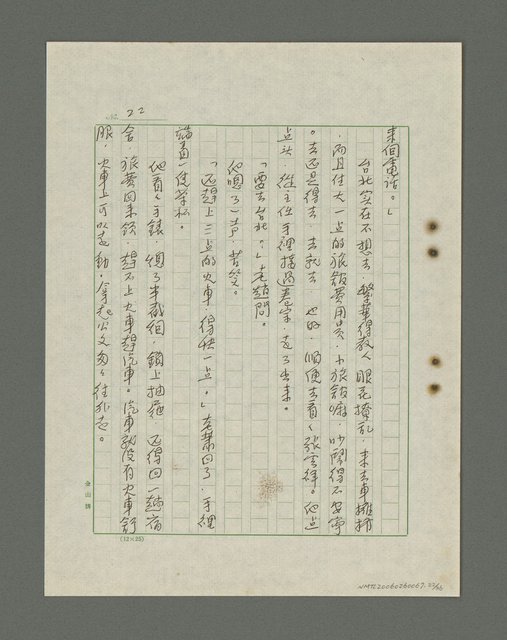 22
來個電話。」
台北实在不想去,繁華得教人眼花撩乱,來去車擁擠
,而且住大一点的旅館費用貴,小旅館嘛,吵鬧得不安寧
。去还是得去,去就去,也好,順便去看看張雲祥。他点
点头,從主任手裡接過卷宗,走了出來。
「要去台北。」老趙問。
他嗯了一声,苦笑。
「还趕上三点的火車,得快一点。」老葉回了,手裡
端着一隻茶杯。
他看看手錶,個了半截組,鎖上抽屜,还得回一趟宿
舍,旅費回來領,趕不上火車趕汽車。汽車就沒有火車舒
服,火車上可以走動。拿起公文匆匆往外走。
金山牌
(12×25)
NMTL20060260067.22/66